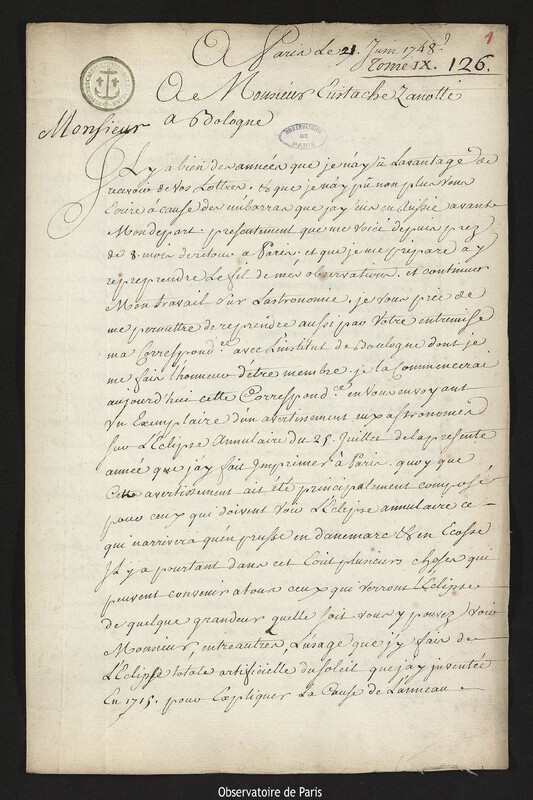 1
A Paris Le 21. Juin 1748.
Tome IX. 126.
A Monsieur Eustache Zanotti
a Bologne
Monsieur
OBSERVATOIRE
DE
PARIS
Il y a bien des années que je n'ay û L'avantage de
recevoir de vos Lettres, & que je n'ay pû non plus vous
Ecrire à cause des embarras que j'ay eus en Russie avant
Mon depart. presentement que me voici depuis prez
de 8. mois de retour a Paris, et que je me prepare a y
repreprendre Le fil de mes observations. et continuer
Mon travail sur Lastronomie, je vous prie de
me permettre de reprendre aussi par votre entremise
ma Correspond.ce avec L'institut de Boulogne dont je
me fais L'honneur d'etre membre. je la Commencerai
aujourd'hui cette Correspond.ce en vous envoyant
un Exemplaire d'un avertissement aux astronomes
sur L'Eclipse Annulaire du 25. Juillet de la presente
année que j'ay fait Imprimer à Paris. quoy que
Cet avertissement ait été principalement composé
pour ceux qui doivent voir L'Eclipse annulaire ce
qui n'arrivera qu'en prusse en danemarc & en Ecosse
Il y a pourtant dans cet Ecrit plusieurs choses qui
peuvent convenir a tous ceux qui verront L'Eclipse
de quelque grandeur quelle soit. vous y pouvez voir
Monsieur, entre autres, L'usage que j'y fais de
L'Eclipse totale artificielle du soleil que j'ay inventée
En 1715. pour Expliquer La Cause de L'anneau
Observatoire de Paris